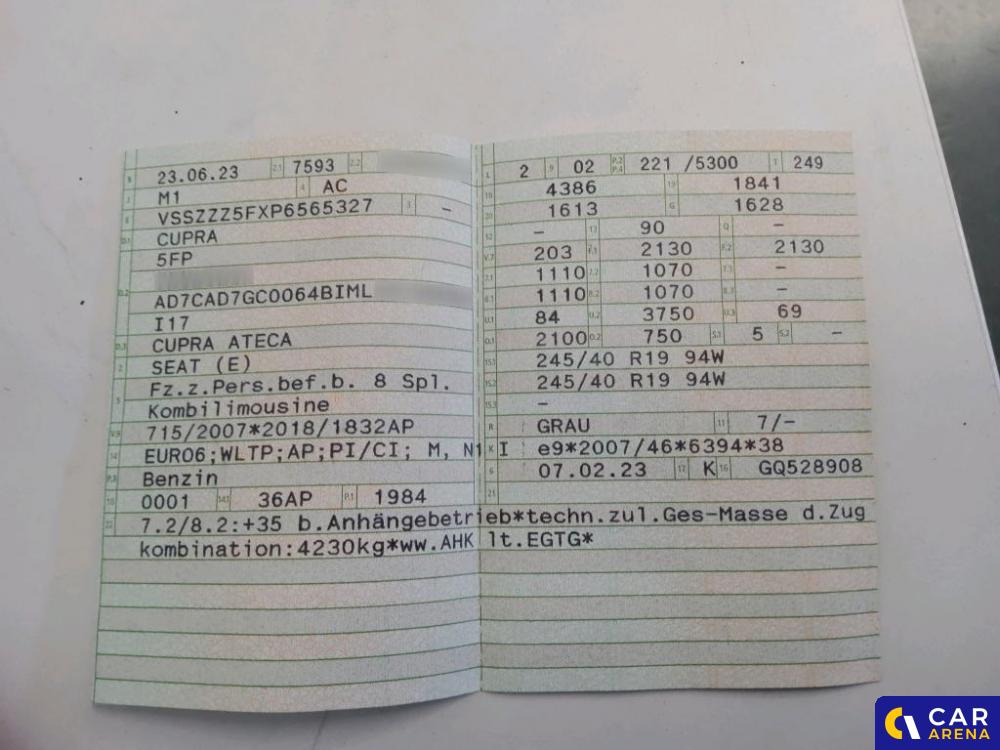 B 23.06.23 2.1 7593 2.2
J M1 4 AC
E VSSZZZ5FXP6565327 3 –
D.1 CUPRA
5FP
D.2
AD7CAD7GC0064BIML
I17
D.3 CUPRA ATECA
2 SEAT (E)
5 Fz.z.Pers.bef.b. 8 Spl.
Kombilimousine
V.9 715/2007*2018/1832AP
14 EURO6;WLTP;AP;PI/CI; M, N1 I
P.3 Benzin
10 0001 14.1 36AP P.1 1984
22 7.2/8.2:+35 b.Anhängebetrieb*techn.zul.Ges-Masse d.Zug
kombination:4230kg*ww.AHK lt.EGTG*
L 2 9 02 P.2 P.4 221 /5300 T 249
18 4386 19 1841
20 1613 G 1628
12 – 13 90 Q –
V.7 203 F.1 2130 F.2 2130
7.1 1110 7.2 1070 7.3 –
8.1 1110 8.2 1070 8.3 –
U.1 84 U.2 3750 U.3 69
O.1 2100 O.2 750 S.1 5 S.2 –
15.1 245/40 R19 94W
15.2 245/40 R19 94W
15.3 –
R GRAU 11 7/–
K e9*2007/46*6394*38
6 07.02.23 17 K 16 GQ528908
21
CAR
ARENA